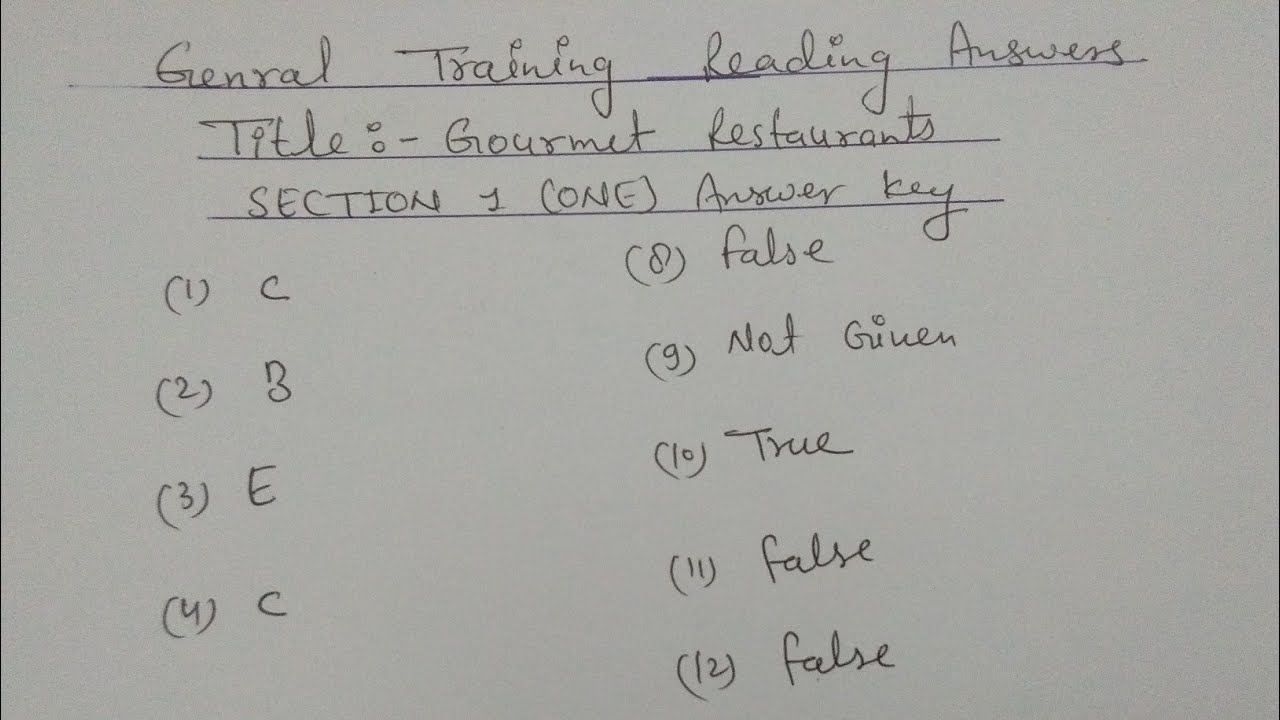 Genral Training Reading Answers
Title:- Gourmet Restaurants
SECTION 1 (ONE) Answer key
(1) C
(2) B
(3) E
(4) C
(8) false
(9) Not Given
(10) True
(11) false
(12) false